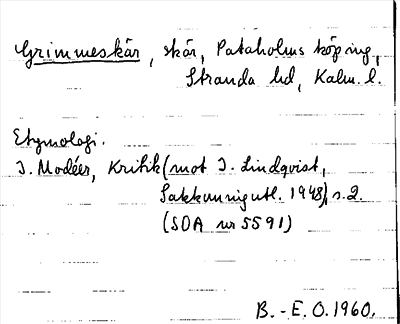 Grimmeskär, skär, Pataholms köping,
Stranda hd, Kalm. l.
Etymologi.
I. Modéer, Kritik (mot I. Lindqvist,
Sakkunnigutl. 1948), s. 2.
(SOA nr 5591)
B.-E. O. 1960.